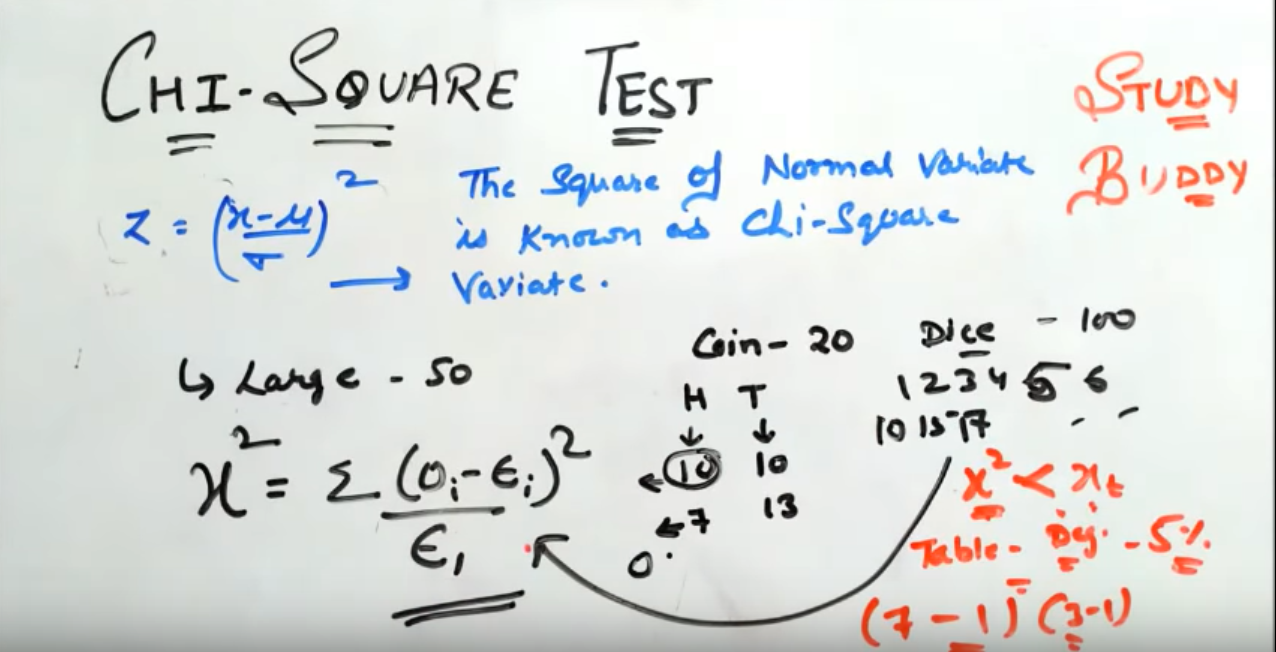 CHI-SQUARE TEST
STUDY
BUDDY
Z = (x-μ/σ)²
The Square of Normal Variate
is known as Chi-Square
Variate.
↳ Large - 50
Coin - 20
H T
↓ ↓
← 10 10
← 7 13
O
Dice - 100
1 2 3 4 5 6
10 15 17 - -
x² = Σ (Oi-Ei)²
Ei
x² < xt
Table - Deg. - 5%
(7-1) (3-1)